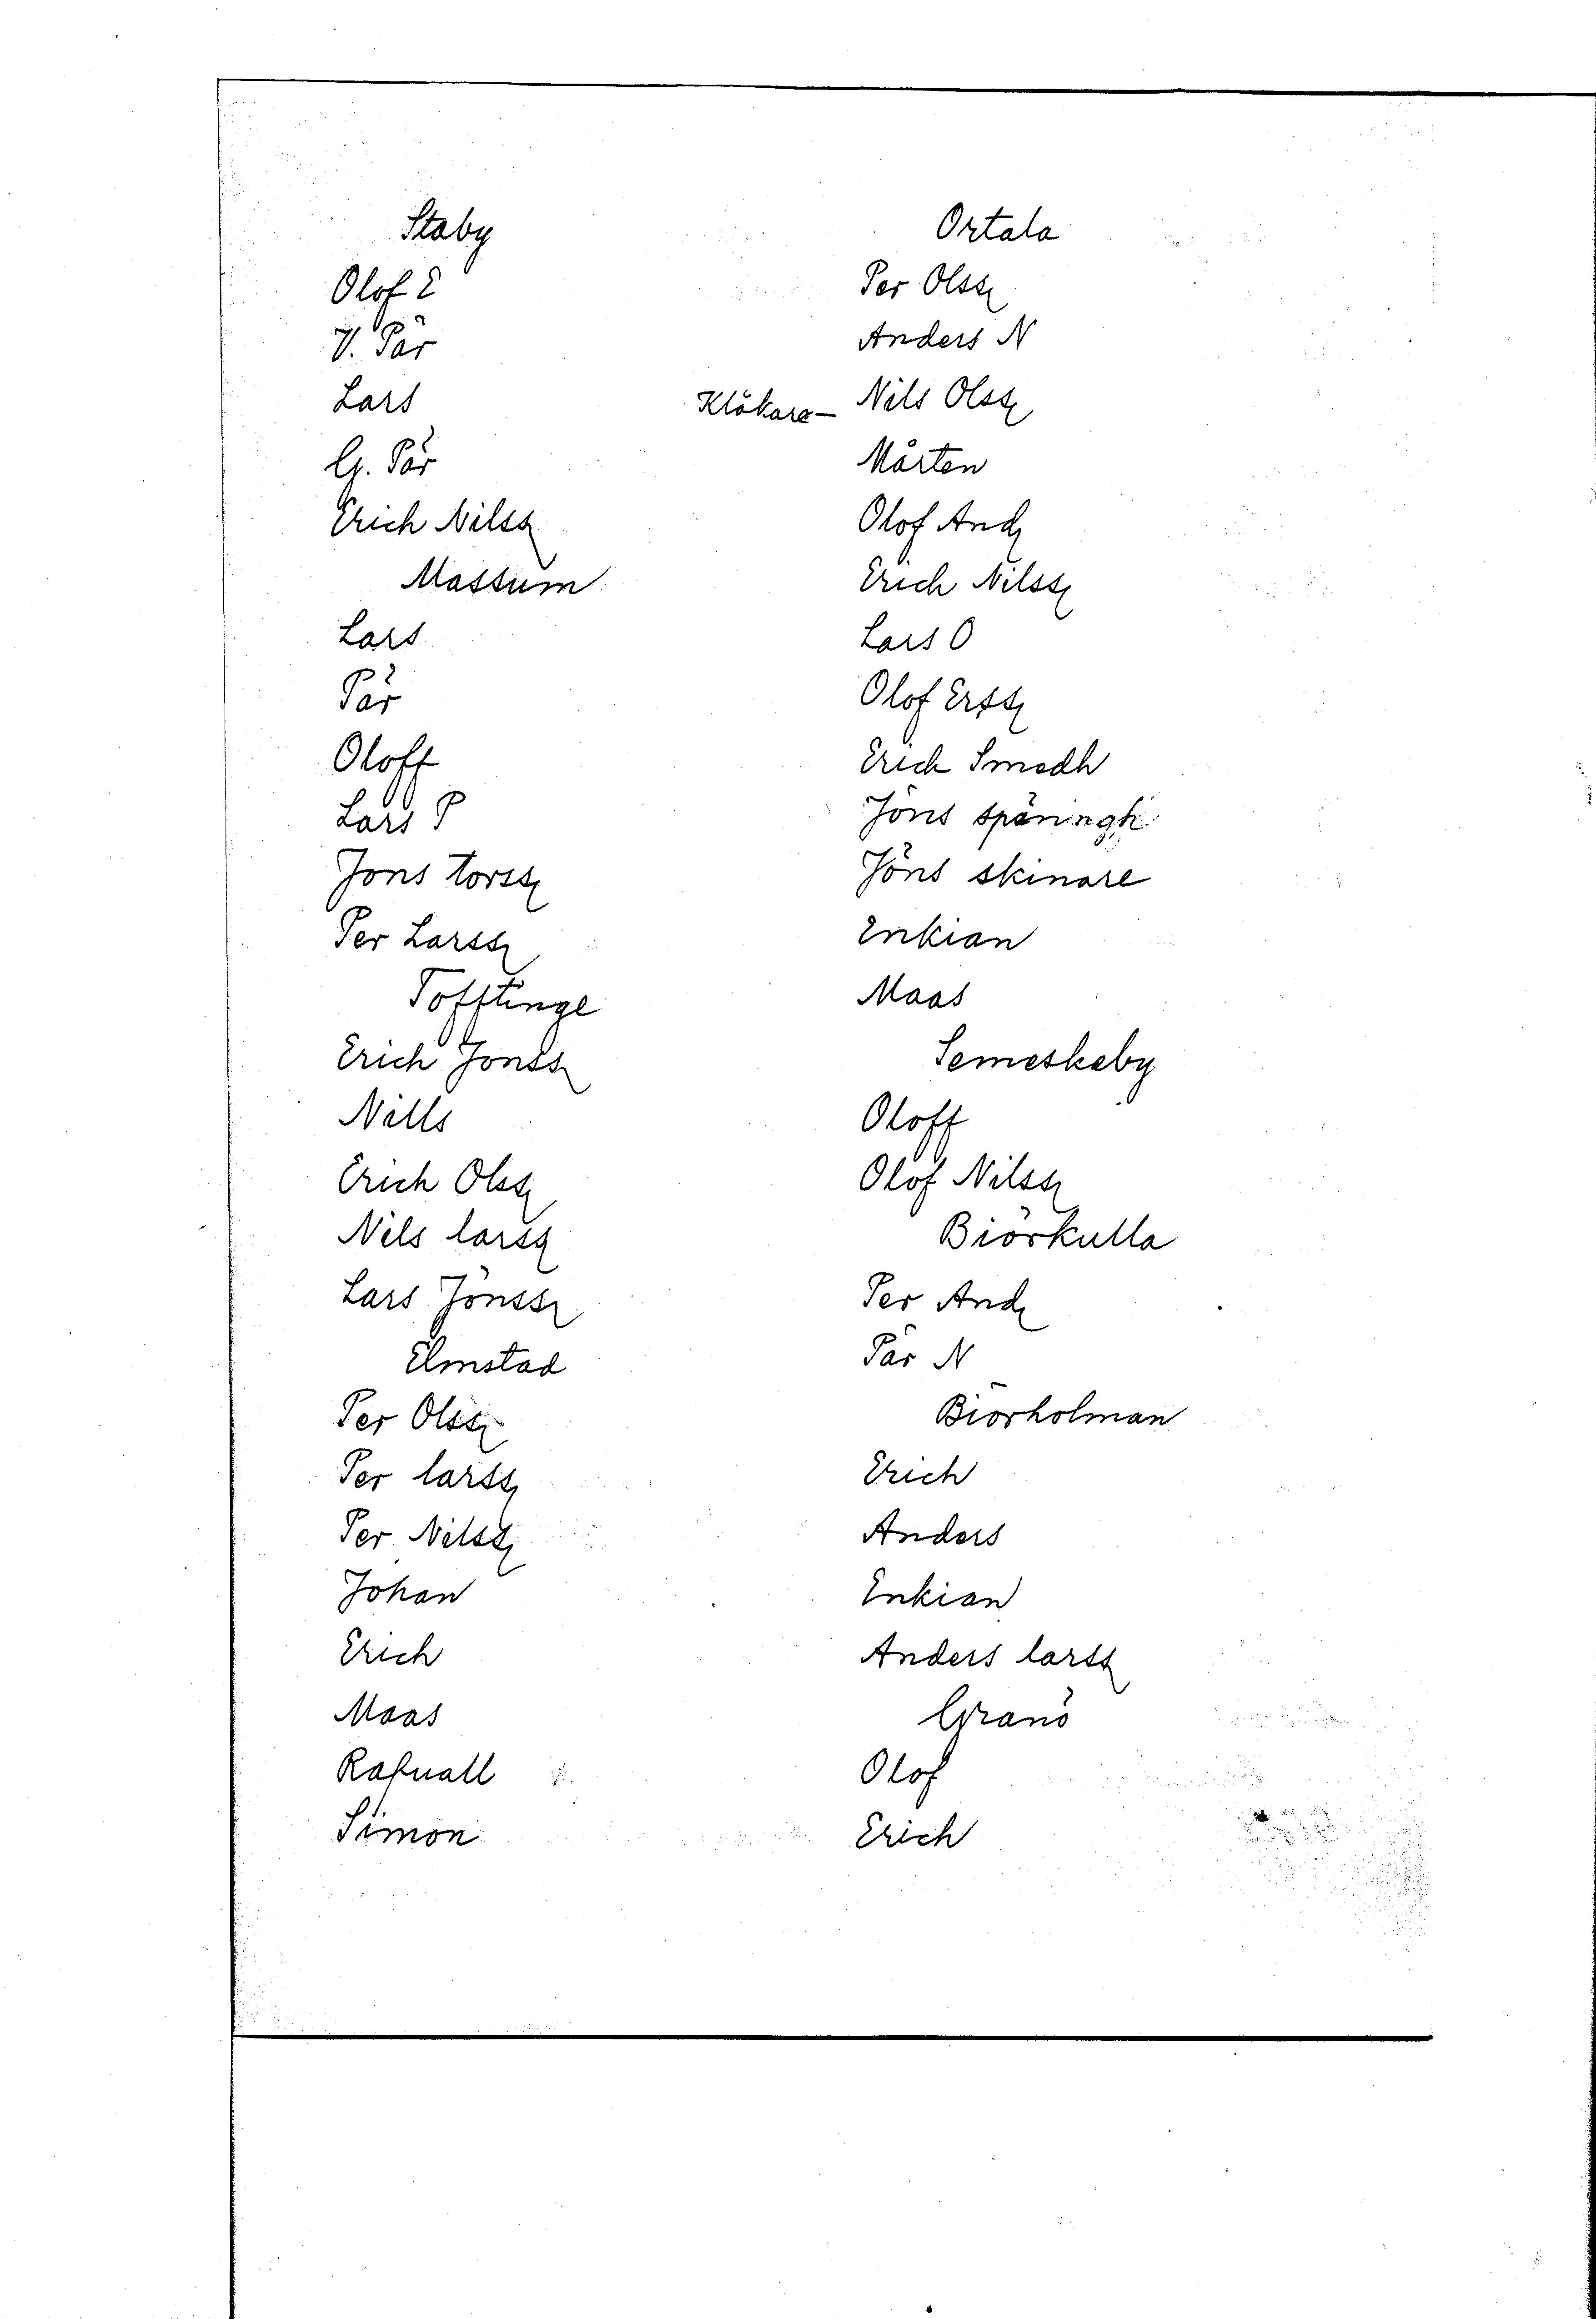 Staby
Olof E
V. Pär
Lars
G. Pär
Erich Nilss
Massum
Lars
Pär
Oloff
Lars P
Jons torss
Per Larss
Tofftinge
Erich Jonss
Nills
Erich Olss
Nils larss
Lars Jönss
Elmstad
Per Olss
Per larss
Per Nilss
Johan
Erich
Maas
Rafuall
Simon
Ortala
Per Olss
Anders N
Klåkare – Nils Olss
Mårten
Olof And
Erich Nilss
Lars O
Olof Erss
Erich Smedh
Jöns späningh
Jöns skinare
Enkian
Maas
Semeskeby
Oloff
Olof Nilss
Biörkulla
Per And
Pär N
Biörholman
Erich
Anders
Enkian
Anders larss
Granö
Olof
Erich